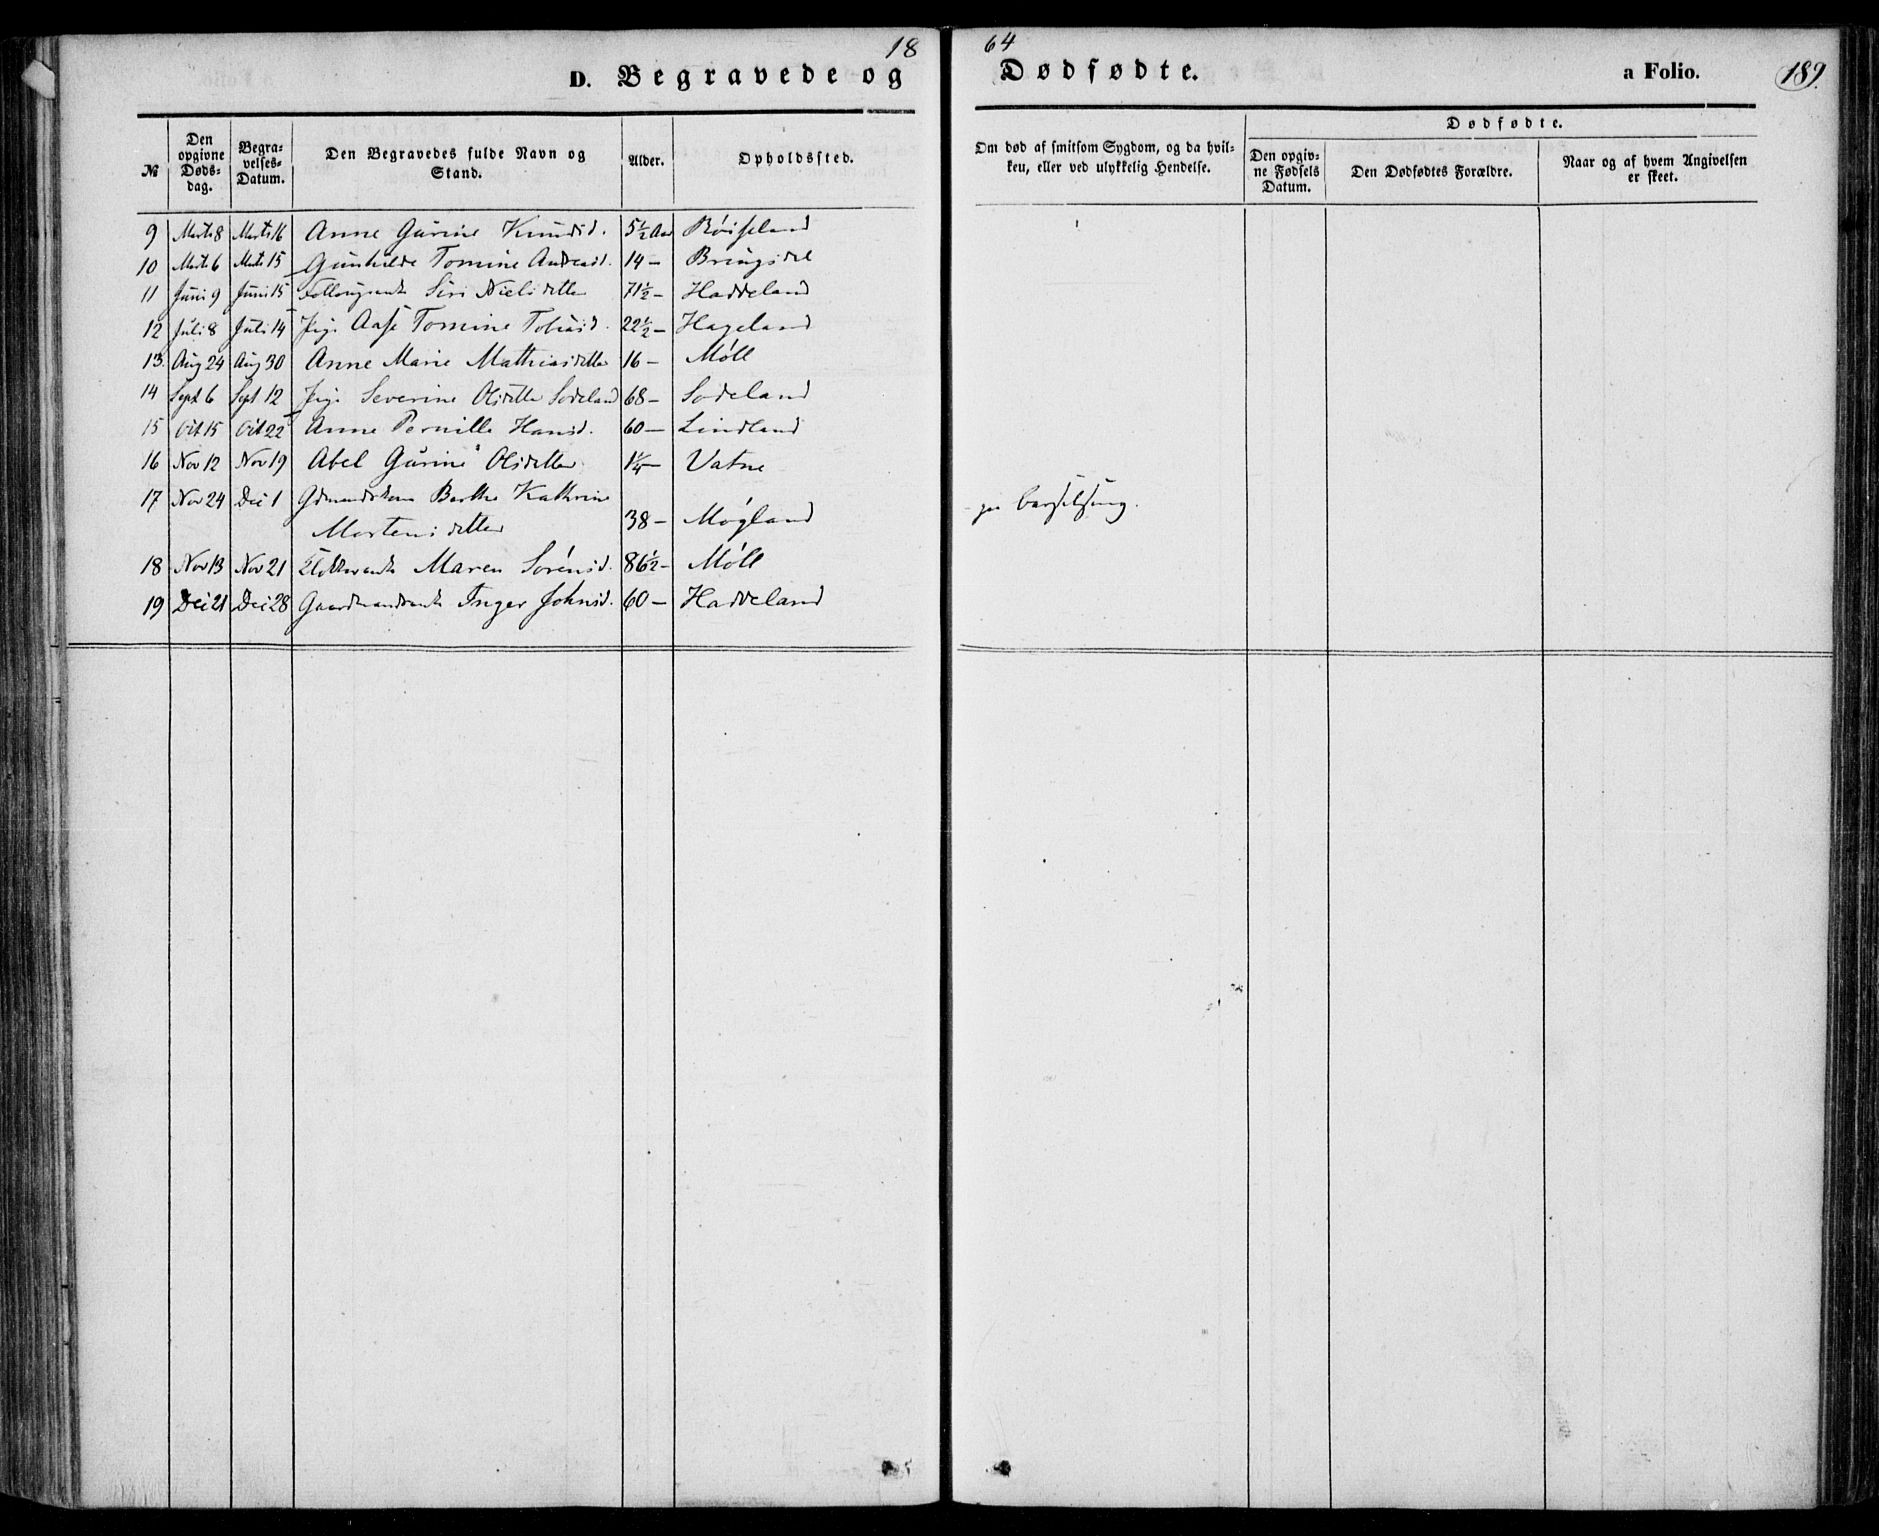 18 64
D. Begravede og Dødfødte. a Folio. 189.
№ | Den opgivne Døds-dag. | Begra-velses-Datum. | Den Begravedes fulde Navn og Stand. | Alder. | Opholdssted. | Om død af smitsom Sygdom, og da hvil-ken, eller ved ulykkelig Hendelse. | Dødfødte. | Den opgiv-ne Fødsels Datum. | Den Dødfødtes Forældre. | Naar og af hvem Angivelsen er skeet.
9 Marts 8 Marts 16 Anne Gurine Knudsd. 5½ Aar Røiseland
10 Marts 6 Marts 15 Gunhilde Tomine Andreasd. 14 – Bringsdal
11 Juni 9 Juni 15 Siri Nielsdatter 71½ – Haddeland
12 Juli 8 Juli 14 Pige Aase Tomine Tobiasd. 22½ – Hageland
13. Aug 24 Aug 30 Anne Marie Mathiasdatter 16 – Møll
14 Sept 6 Sept 12 Pige Severine Olsdatter Sodeland 68 – Sodeland
15 Oct 15 Oct 22 Anne Pernille Hansd. 60 – Lindland
16 Nov 12 Nov 19 Abel Gurine Olsdatter 1¼ – Vatne
17 Nov 24 Dec 1 Gdmandskone Berthe Kathrine
Mortensdatter 38 – Møgland barselseng.
18 Nov 13 Nov 21 Maren Sørensd. 86½ – Møll
19 Dec 21 Dec 28 Gaardmandsenke Inger Johnsd. 60 – Haddeland